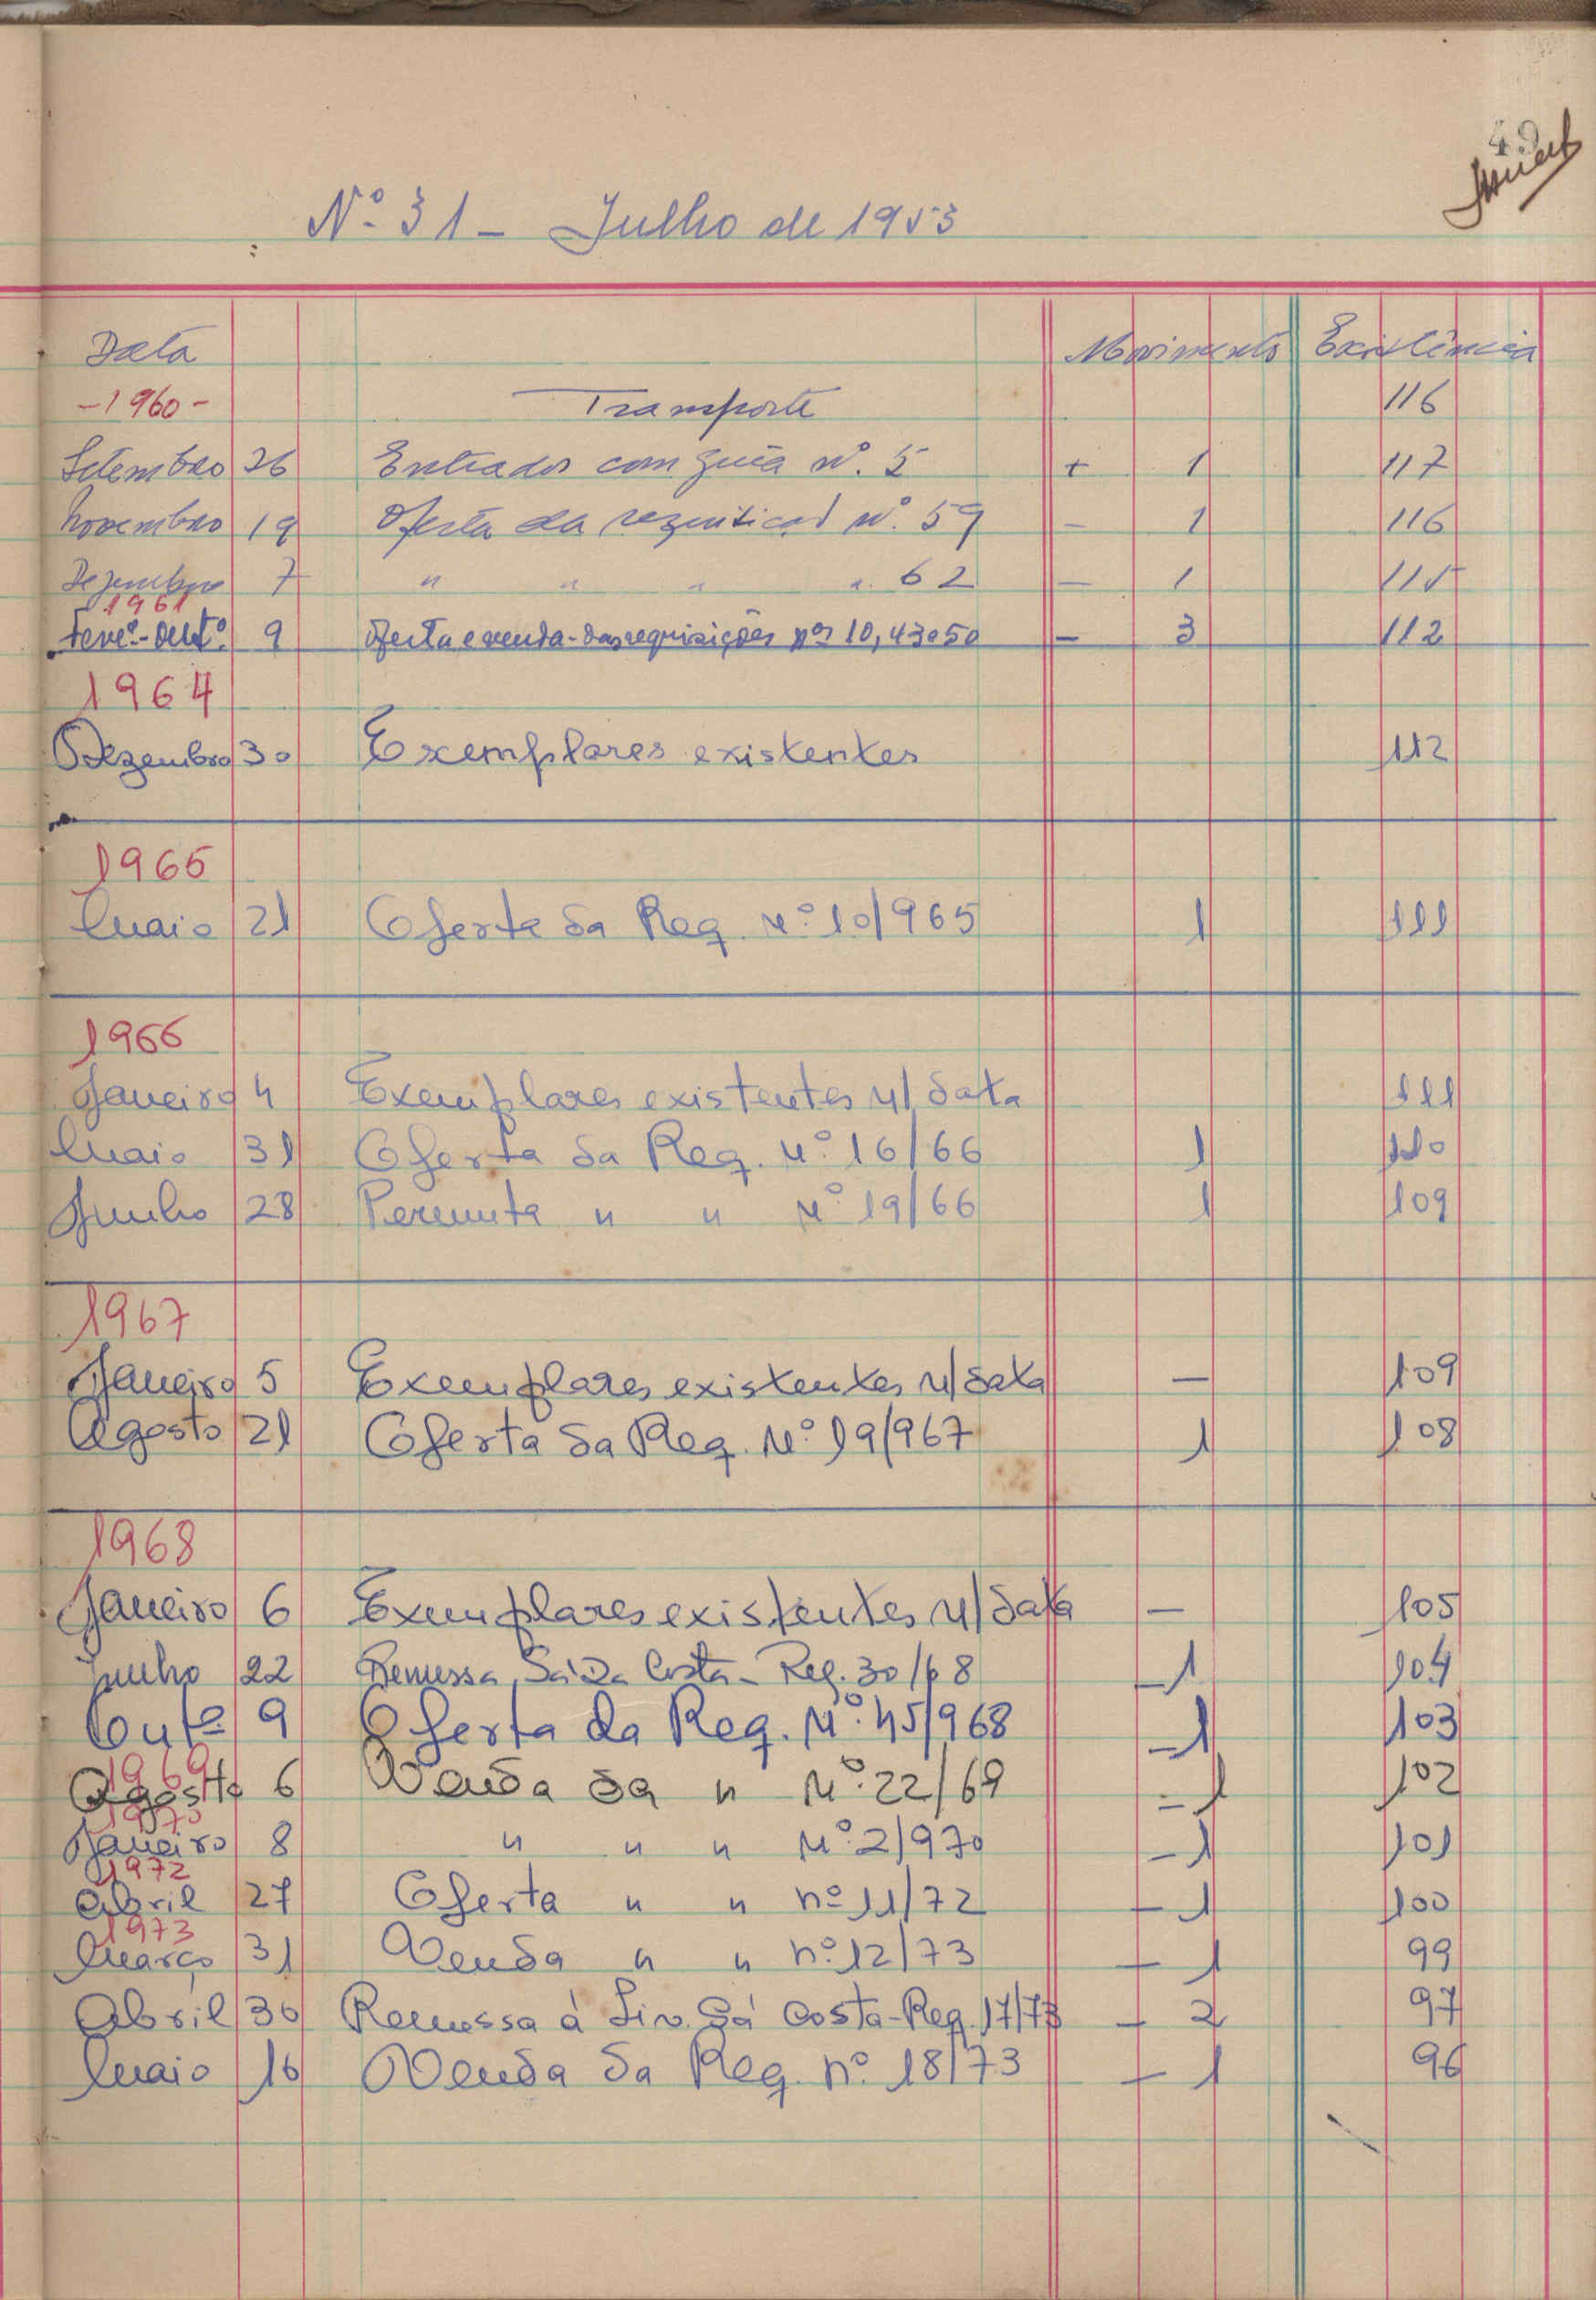 49
Nº 31 - Julho de 1953
Data Movimento Existência
-1960- Transporte 116
Setembro 26 Entrados com guia nº. 5 + 1 117
Novembro 19 Oferta da requisição nº. 59 - 1 116
Dezembro 7 " " " ". 62 - 1 115
1961
Feveº.-Outº. 9 Oferta e venda-das requisições nºs 10, 43 e 50 - 3 112
1964
Dezembro 30 Exemplares existentes 112
1965
Maio 21 Oferta da Req. Nº 10/965 1 111
1966
Janeiro 4 Exemplares existentes n/data 111
Maio 31 Oferta da Req. Nº 16/66 1 110
Junho 28 Permuta " " Nº 19/66 1 109
1967
Janeiro 5 Exemplares existentes n/data — 109
Agosto 21 Oferta da Req. Nº 19/967 1 108
1968
Janeiro 6 Exemplares existentes n/data — 105
Junho 22 Remessa Sá Da Costa - Req. 30/68 -1 104
Outº 9 Oferta da Req. Nº 45/968 -1 103
1969
Agosto 6 Venda da " Nº 22/69 -1 102
1970
Janeiro 8 " " " Nº 2/970 -1 101
1972
Abril 27 Oferta " " nº 11/72 -1 100
1973
Março 31 Venda " " nº 12/73 -1 99
Abril 30 Remessa à Liv. Sá Costa-Req. 17/73 - 2 97
Maio 16 Venda da Req. nº 18/73 -1 96